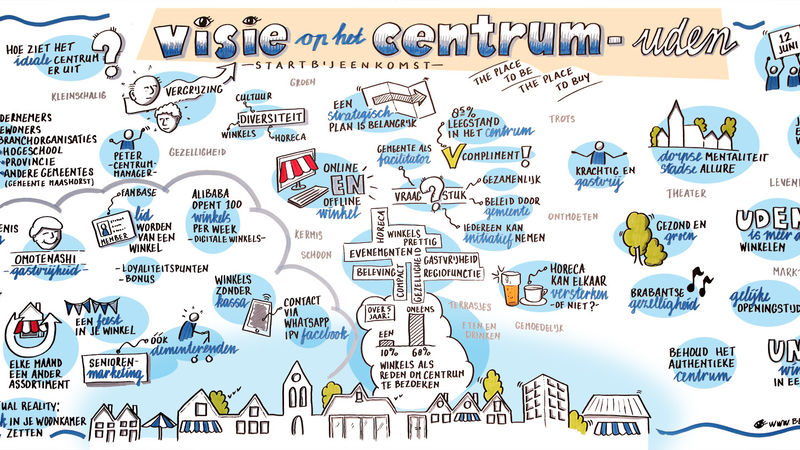 visie op het centrum-uden
STARTBIJEENKOMST
HOE ZIET HET
ideale CENTRUM
ER UIT
?
KLEINSCHALIG
VERGRIJZING
GROEN
CULTUUR
DIVERSITEIT
WINKELS
HORECA
EEN
strategisch
PLAN IS BELANGRIJK
THE PLACE
TO BE
THE PLACE
TO BUY
8,5%
LEEGSTAND
IN HET centrum
V COMPLIMENT!
TROTS
12
JUNI
HOGESCHOOL
PROVINCIE
ANDERE GEMEENTES
(GEMEENTE MAASHORST)
PETER
-CENTRUM-
MANAGER-
GEZELLIGHEID
ONLINE
EN
OFFLINE
winkel
GEMEENTE ALS
facilitator
VRAAG ? STUK
GEZAMENLIJK
BELEID DOOR
gemeente
IEDEREEN KAN
initiatief NEMEN
KRACHTIG EN
gastvrij
dorpse MENTALITEIT
stadse ALLURE
THEATER
ONTMOETEN
OMOTENASHI
-gastvrijheid-
FANBASE
MEMBER
lid
WORDEN
VAN EEN
WINKEL
-LOYALITEITSPUNTEN
-BONUS
ALIBABA
OPENT 100
winkels
PER WEEK
-DIGITALE WINKELS-
KERMIS
SCHOON
HORECA
WINKELS
PRETTIG
EVENEMENTEN
GASTVRIJHEID
BELEVING
COMPACT
GEZELLIGHEID
REGIOFUNCTIE
GEZOND EN
groen
UDEN
is meer d
WINKELEN
WINKELS
ZONDER
kassa
CONTACT
VIA
WHATSAPP
IPV facebook
HORECA
KAN ELKAAR
versterken
-OF NIET?-
TERRASSES
ETEN EN
DRINKEN
GEMOEDELIJK
BRABANTSE
gezelligheid
gelijke
OPENINGSTIJD
ELKE MAAND
EEN ANDER
ASSORTIMENT
EEN feest
IN JE WINKEL
ÓÓK
dementerenden
SENIOREN-
marketing
OVER 5
JAAR:
ONEENS
EEN
10%
68%
WINKELS ALS
REDEN OM CENTRUM
TE BEZOEKEN
BEHOUD HET
AUTHENTIEKE
centrum
UAL REALITY:
IN JE WOONKAMER
ZETTEN